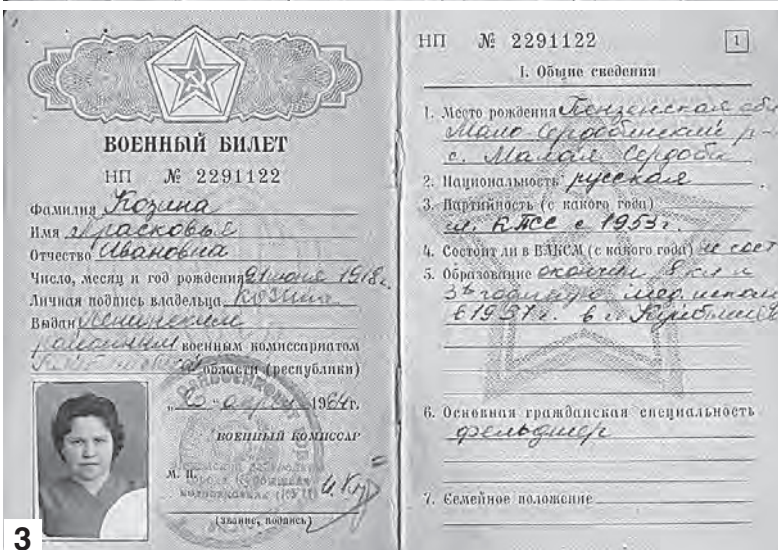 ВОЕННЫЙ БИЛЕТ
НП № 2291122
Фамилия Козина
Имя Прасковья
Отчество Ивановна
Число, месяц и год рождения 1918г.
Личная подпись владельца Козина
Выдан Ленинским
районным военным комиссариатом
области (республики)
1964г.
ВОЕННЫЙ КОМИССАР
М. П.
(звание, подпись)
3
НП № 2291122
1
I. Общие сведения
1. Место рождения Пензенская обл
Мало Сердобинский р-
с. Малая Сердоба
2. Национальность русская
3. Партийность (с какого года)
чл. КПСС с 1953г.
4. Состоит ли в ВЛКСМ (с какого года) не сост
5. Образование 8 кл и
мед.
в г. Куйбышев
6. Основная гражданская специальность
фельдшер
7. Семейное положение